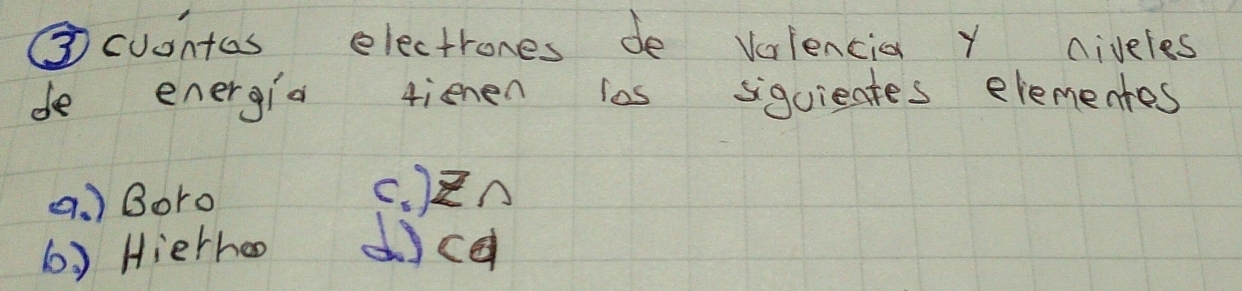 ③ cuántos electrones de valencia y niveles
de energía tienen los siguientes elementos
a.) Boro c.) Zn
b.) Hierro d.) Ca